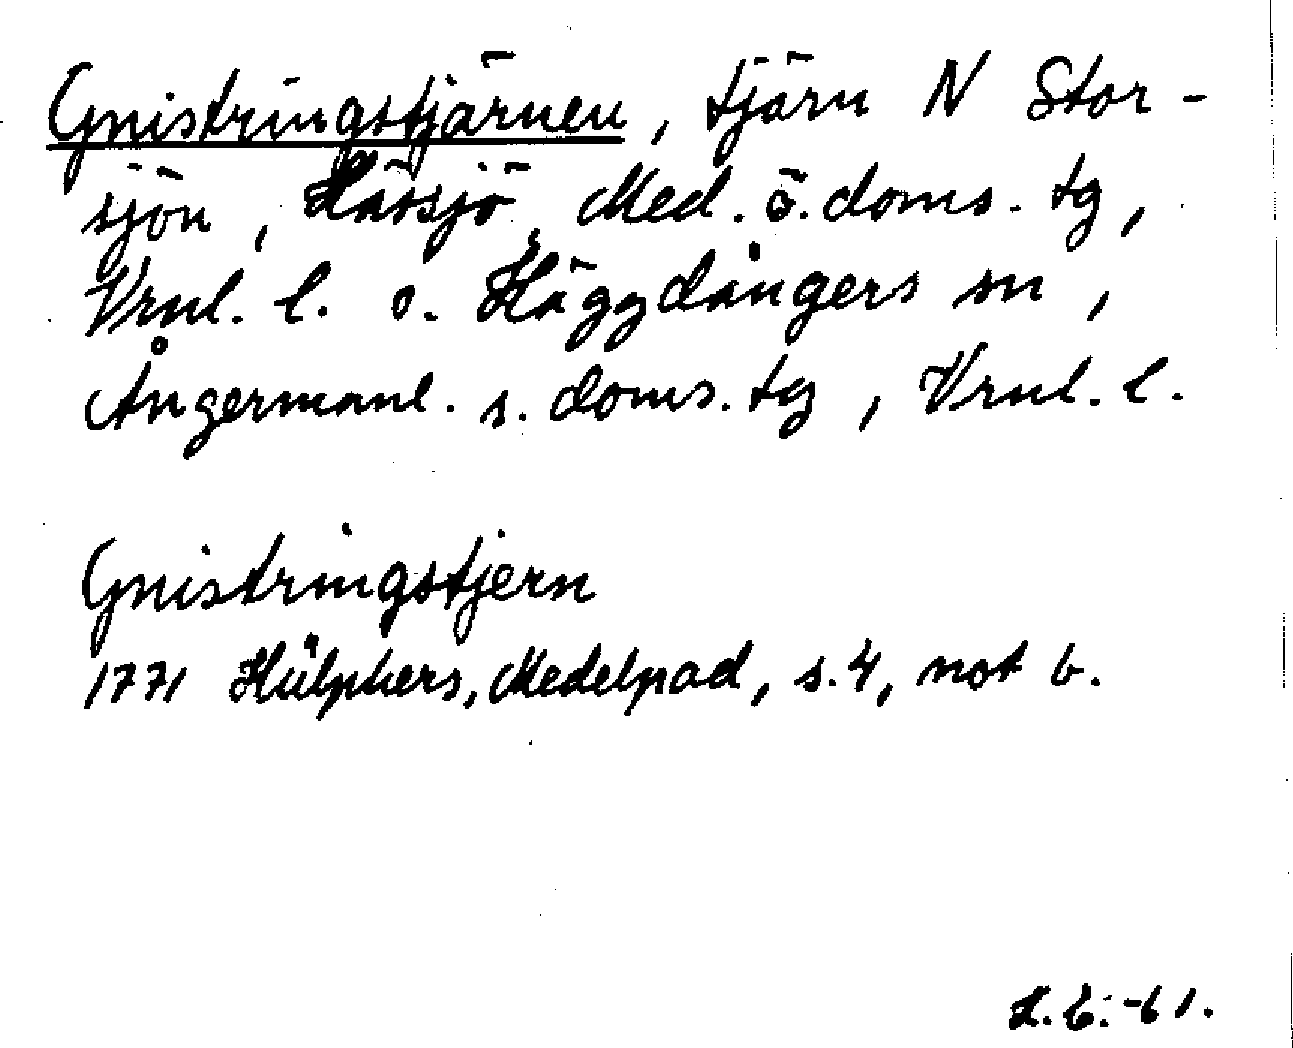 Gnistringstjärnen, tjärn N Stor-
sjön, Hässjö, Med. ö. doms. tg,
Vrnl. l. o. Häggdångers sn,
Ångermanl. s. doms. tg, Vrnl. l.
Gnistringstjern
1771 Hülphers, Medelpad, s. 4, not b.
L. E. -61.